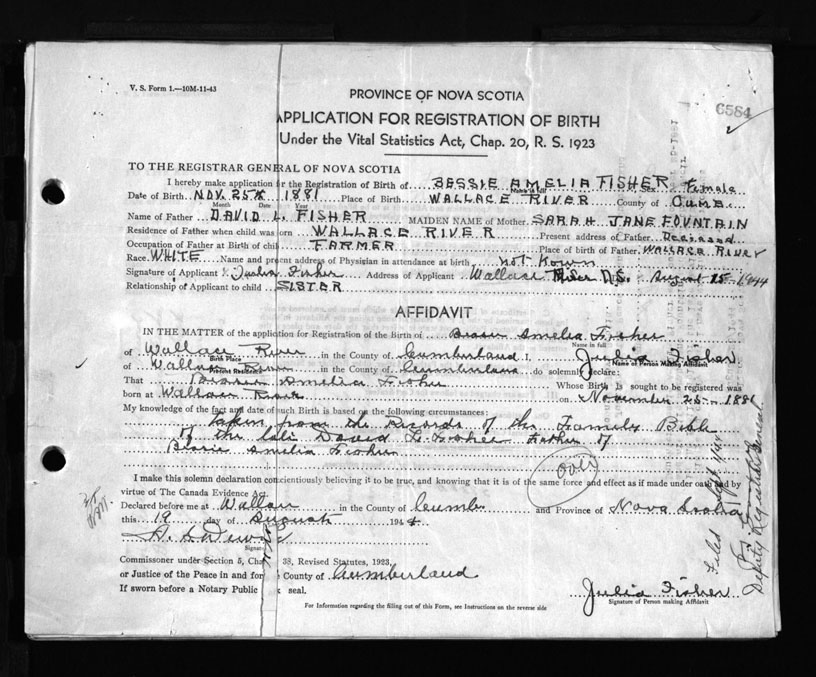 V. S. Form 1.—10M-11-43
6584
PROVINCE OF NOVA SCOTIA
APPLICATION FOR REGISTRATION OF BIRTH
Under the Vital Statistics Act, Chap. 20, R. S. 1923
TO THE REGISTRAR GENERAL OF NOVA SCOTIA
I hereby make application for the Registration of Birth of BESSIE AMELIA FISHER Sex Female
Name in full
Date of Birth NOV. 25th 1881 Place of Birth WALLACE RIVER County of CUMB.
Month Date Year
Name of Father DAVID L. FISHER MAIDEN NAME of Mother SARAH JANE FOUNTAIN
Residence of Father when child was born WALLACE RIVER Present address of Father Deceased
Occupation of Father at Birth of child FARMER Place of birth of Father WALLACE RIVER
Race WHITE Name and present address of Physician in attendance at birth not Kown
Signature of Applicant Julia Fisher Address of Applicant Wallace River N.S. August 15 1944
Relationship of Applicant to child SISTER
AFFIDAVIT
IN THE MATTER of the application for Registration of the Birth of Bessie Amelia Fisher
Name in full
of Wallace River in the County of Cumberland I, Julia Fisher
Birth Place Name of Person Making Affidavit
of Wallace River in the County of Cumberland do solemnly declare:
Present Residence
That Bessie Amelia Fisher Whose Birth is sought to be registered was
born at Wallace River on November 25 1881
My knowledge of the fact and date of such Birth is based on the following circumstances:
Taken from the Records of the Family Bible
of the late David L. Fisher Father of
Bessie Amelia Fisher
over
I make this solemn declaration conscientiously believing it to be true, and knowing that it is of the same force and effect as if made under oath and by
virtue of The Canada Evidence Act.
Declared before me at Wallace in the County of Cumb and Province of Nova Scotia
this 19 day of August 1944
Signature
Commissioner under Section 5, Chap 38, Revised Statutes, 1923,
or Justice of the Peace in and for County of Cumberland
If sworn before a Notary Public seal.
Julia Fisher
Signature of Person making Affidavit
For Information regarding the filling out of this Form, see Instructions on the reverse side
Filed
Deputy Registrar General